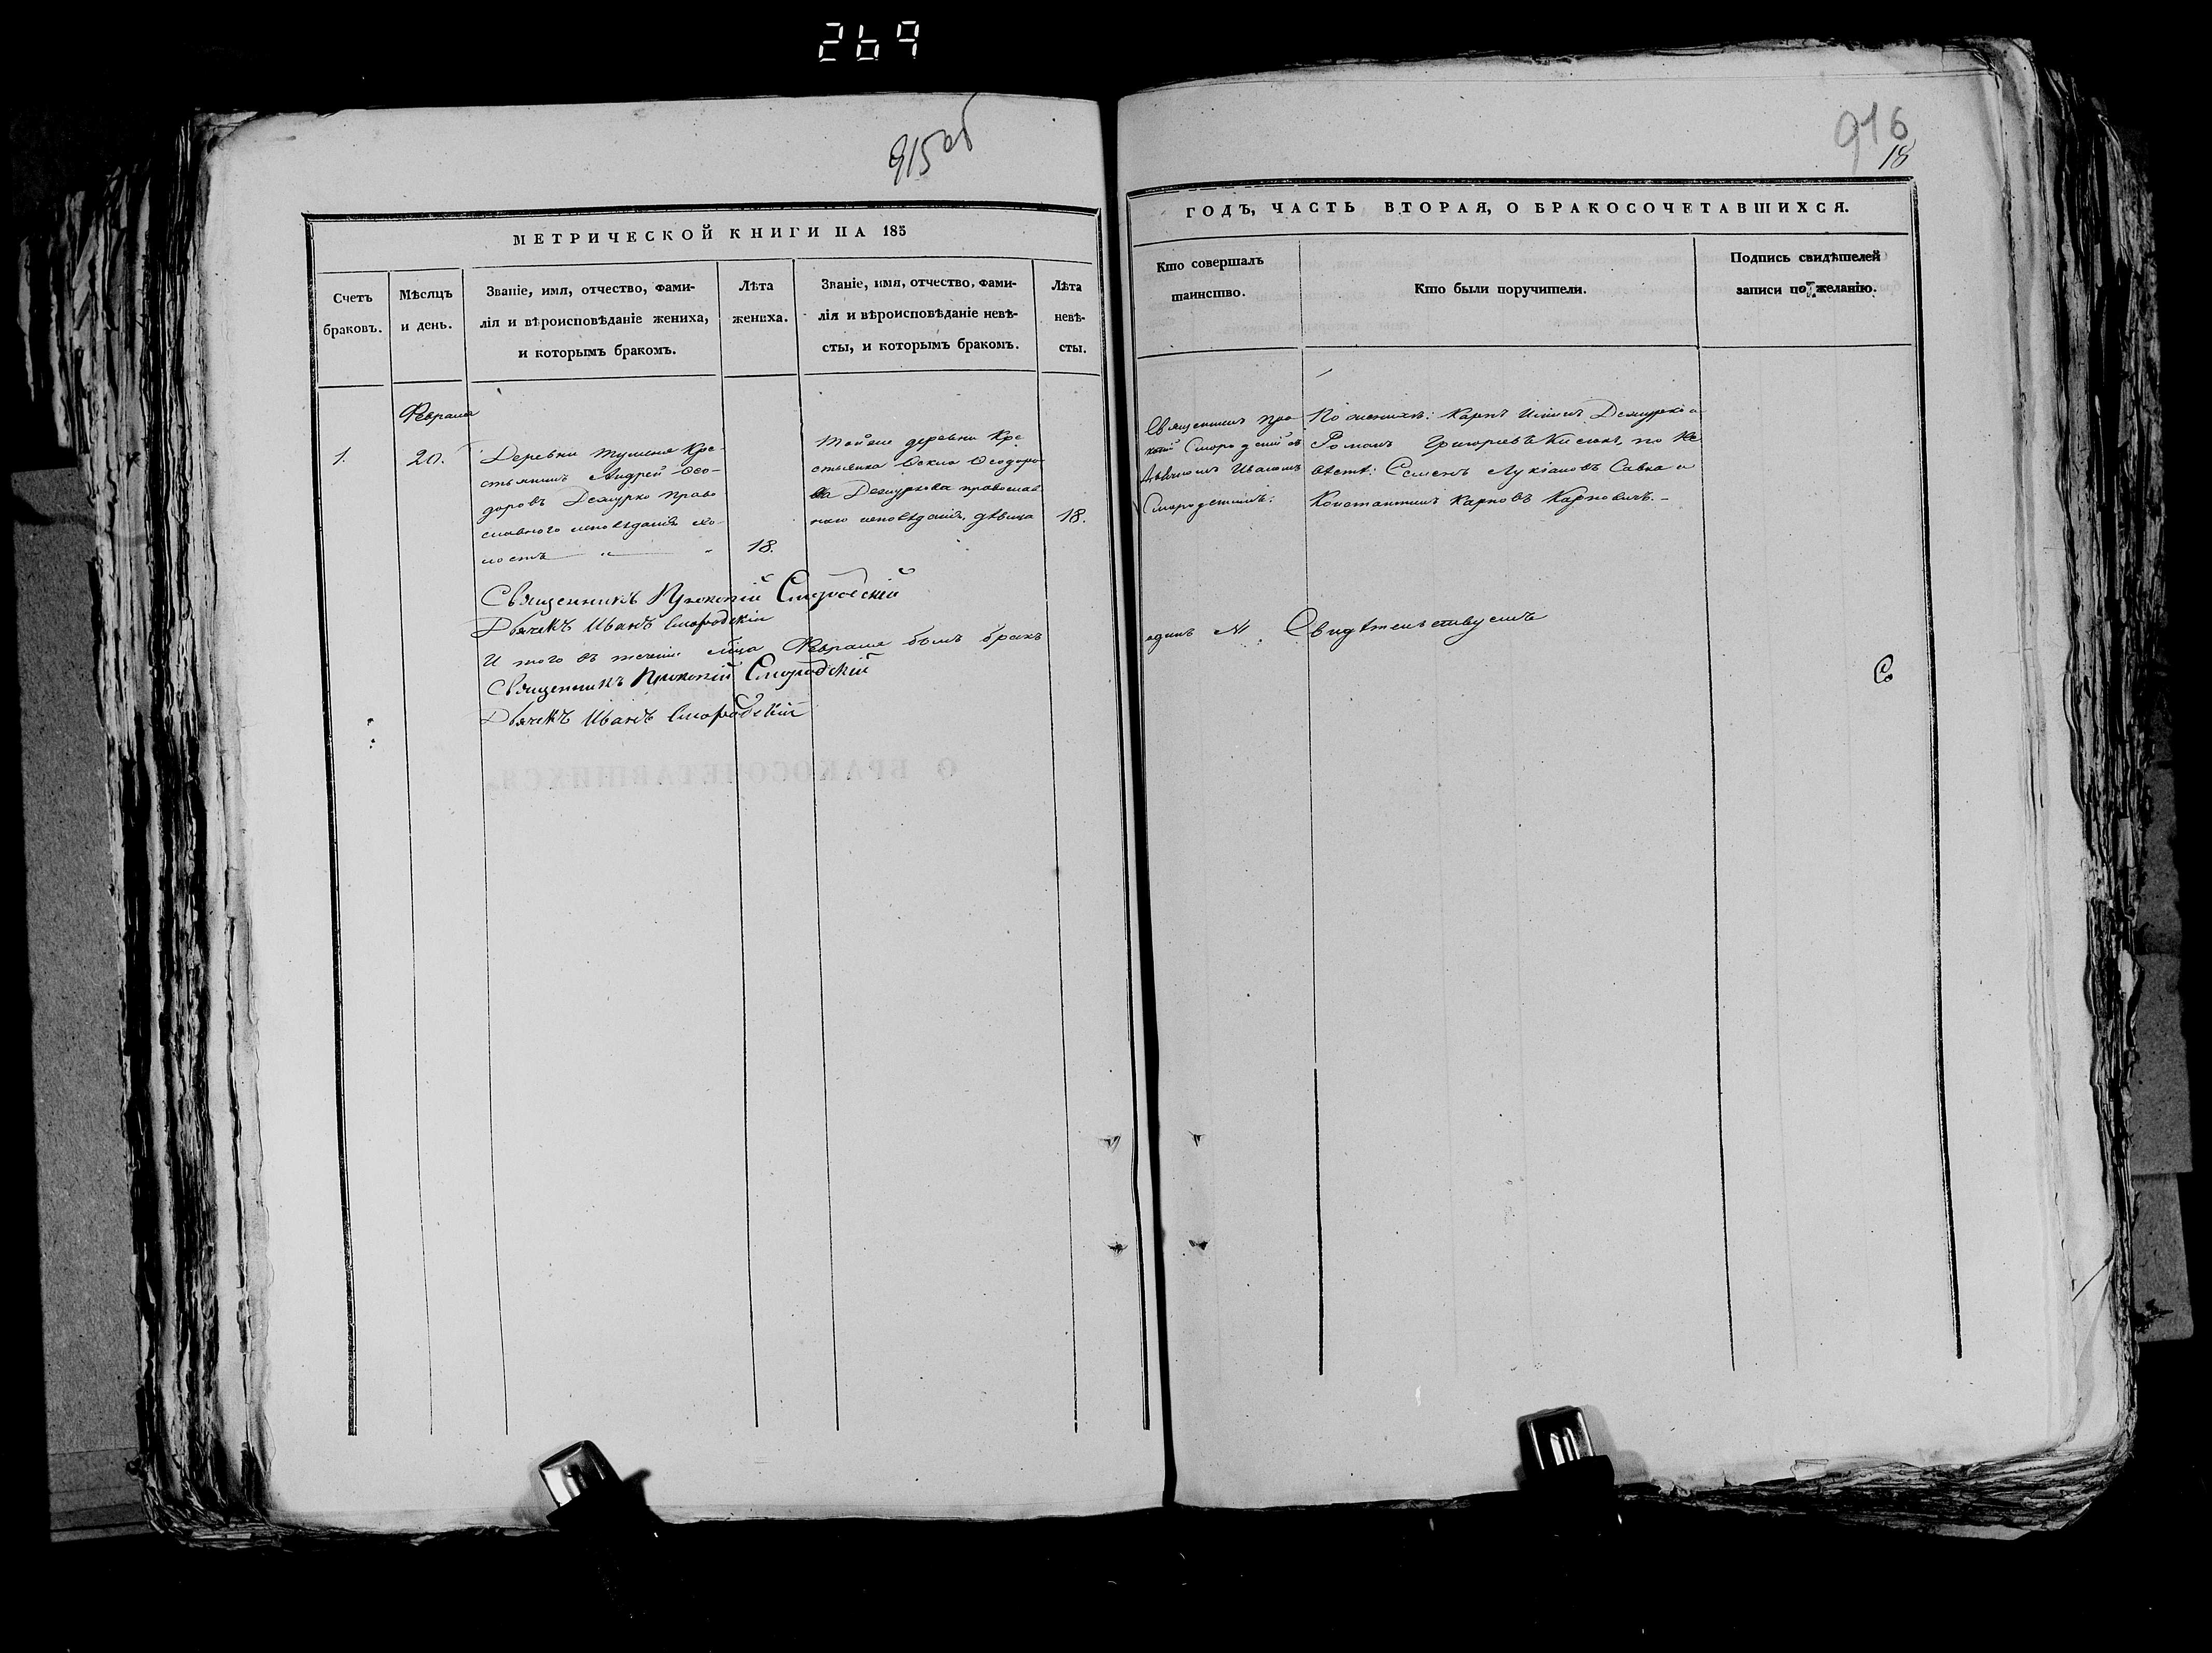 269
915об
МЕТРИЧЕСКОЙ КНИГИ НА 185
Счетъ
браковъ.
Мѣсяцъ
и день.
Званіе, имя, отчество, фами-
лія и вѣроисповѣданіе жениха,
и которымъ бракомъ.
Лѣта
жениха.
Званіе, имя, отчество, фами-
лія и вѣроисповѣданіе невѣ-
сты, и которымъ бракомъ.
Лѣта
невѣ-
сты.
Февраля
1.
20.
Деревни Туменя Кре-
стьянинъ Андрей Ѳео-
доровъ Демурко право
славного исповѣданія хо-
лостъ
18.
Той же деревни Кре
стьянка Ѳеодоро
ва Демуркова православ
наго исповѣданія, дѣвица
18.
Священникъ Прокопій Смородскій
Дьячекъ Иванъ Смородскій
И того въ теченіи м-ца Февраля былъ бракъ
Священникъ Прокопій Смородскій
Дьячекъ Иванъ Смородскій
916
18
ГОДЪ, ЧАСТЬ ВТОРАЯ, О БРАКОСОЧЕТАВШИХСЯ.
Кто совершалъ
таинство.
Кто были поручители.
Подпись свидѣтелей
записи по желанію.
Священникъ Про
копій Смородскій съ
Дьячкомъ Иваномъ
Смородскимъ:
По женихѣ: Карпъ Демурко и
Романъ Григорьевъ Кисель, по не
вѣстѣ: Семенъ Лукіановъ Савка и
Константинъ Карповъ Карповичъ. –
одинъ №1. Свидѣтельствуемъ
Со